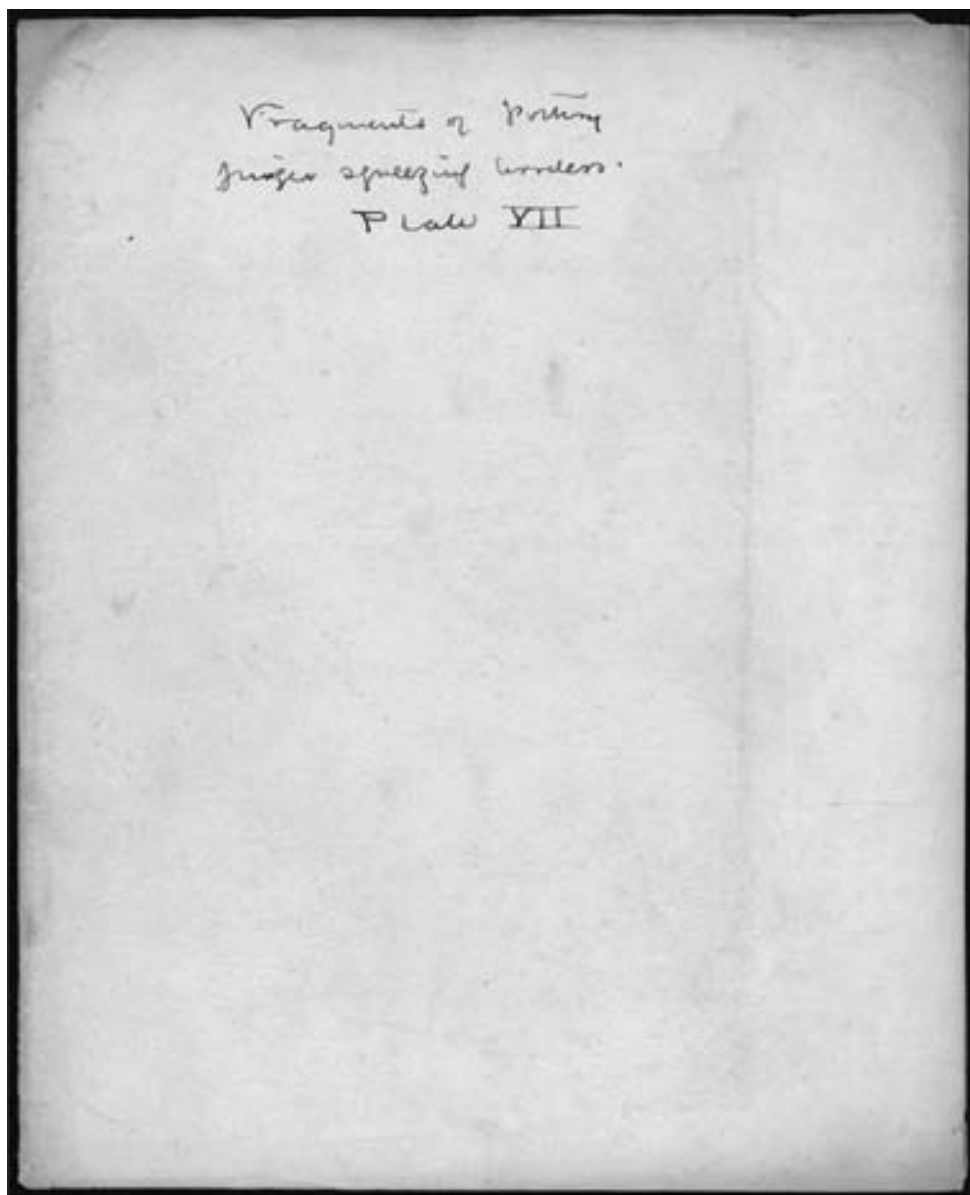 Fragments of Pottery
finger squeezing borders.
Plate VII